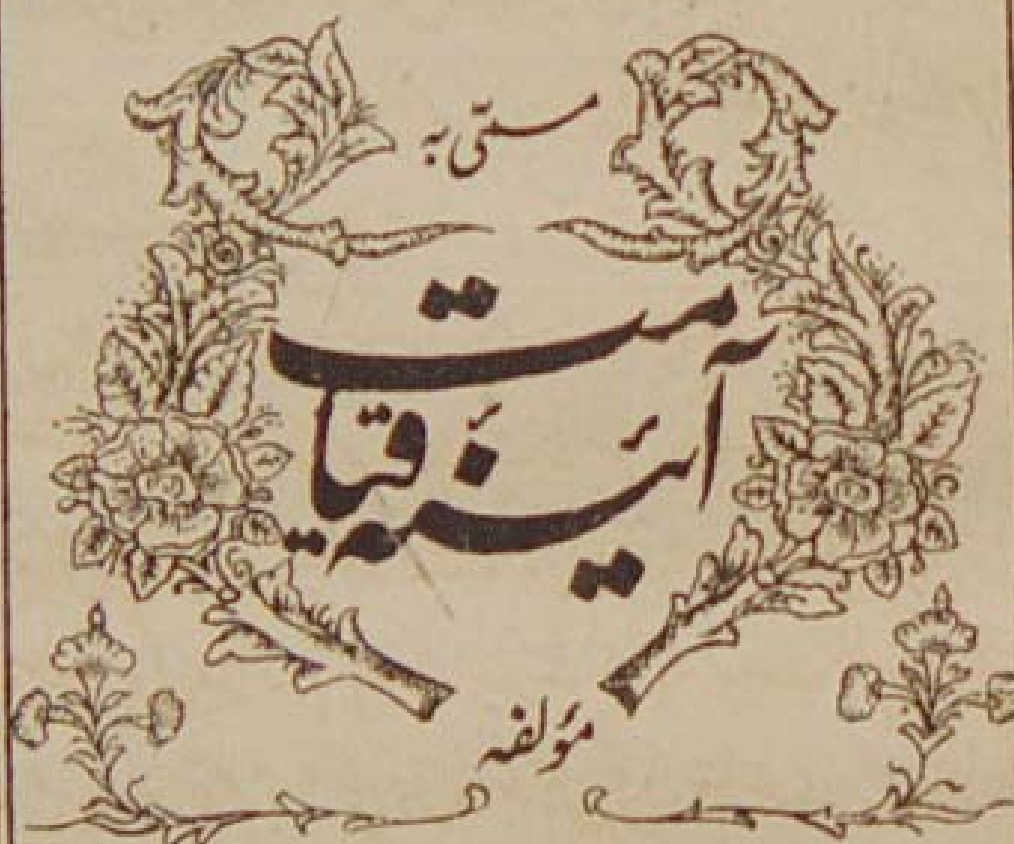 مسمّٰی بہ
آئینۂ قیامت
مؤلفہ